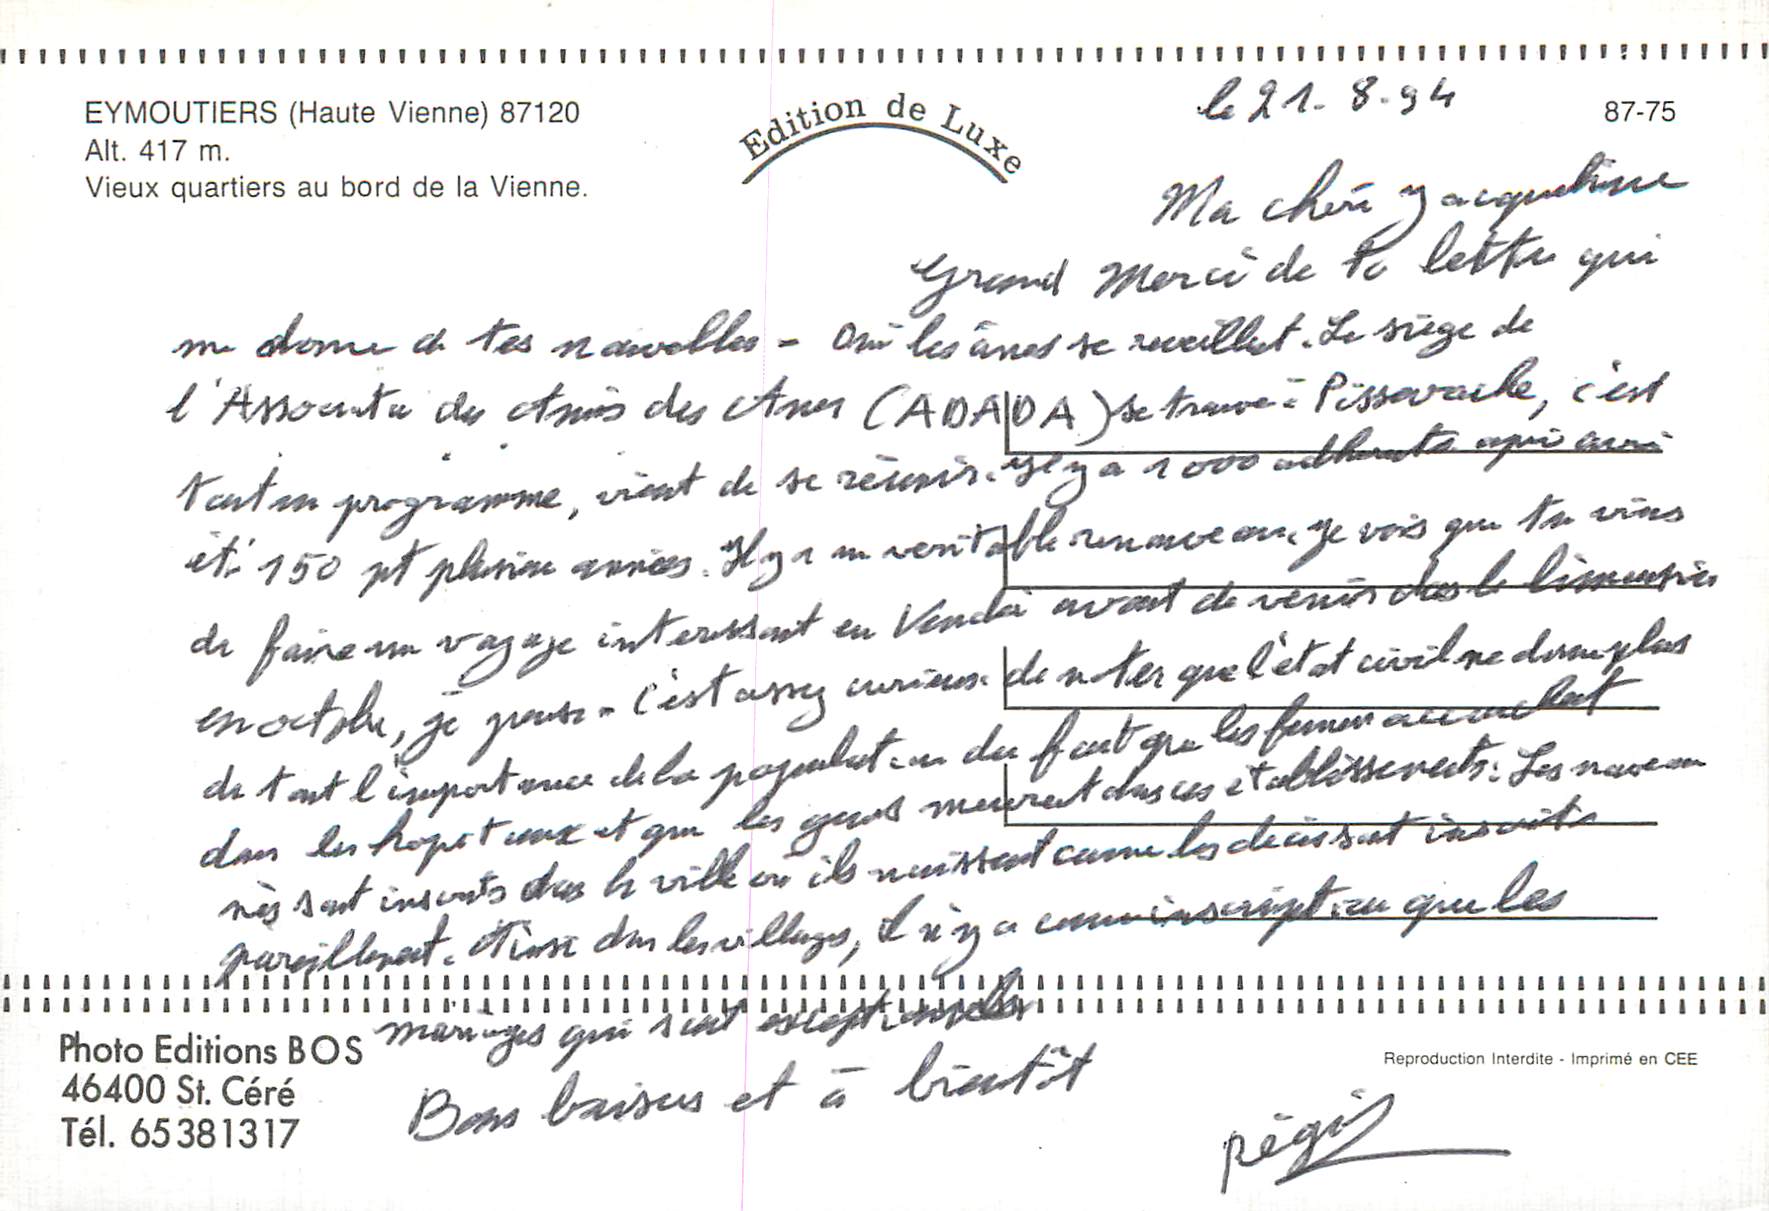 EYMOUTIERS (Haute Vienne) 87120
Alt. 417 m.
Vieux quartiers au bord de la Vienne.
Edition de Luxe
le 21-8-94
87-75
Ma chère Jacqueline
Grand Merci de ta lettre qui
me donne de tes nouvelles - Oui les ânes se reveillent. Le siège de
l'Association des Amis des Anes (ADADA) se trouve à Pissevache, c'est
tout un programme, vient de se réunir. Il y a 1000 adhérents après avoir
été 150 pt plusieurs années. Il y a un veritable renouveau. Je vois que tu viens
de faire un voyage interessant en Vendée avant de venir dans le limousin
en octobre, je pense - C'est assez curieux de noter que l'état civil ne donne plus
du tout l'importance de la population du fait que les femmes accouchent
dans les hopitaux et que les gens meurent dans ces établissements. Les nouveau
nés sont inscrits dans la ville où ils naissent comme les décès sont inscrits
pareillement. Ainsi dans les villages, il n'y a comme inscription que les
mariages qui sont exceptionnels
Bons baisers et à bientôt
Régis
Photo Editions BOS
46400 St. Céré
Tél. 65381317
Reproduction Interdite - Imprimé en CEE